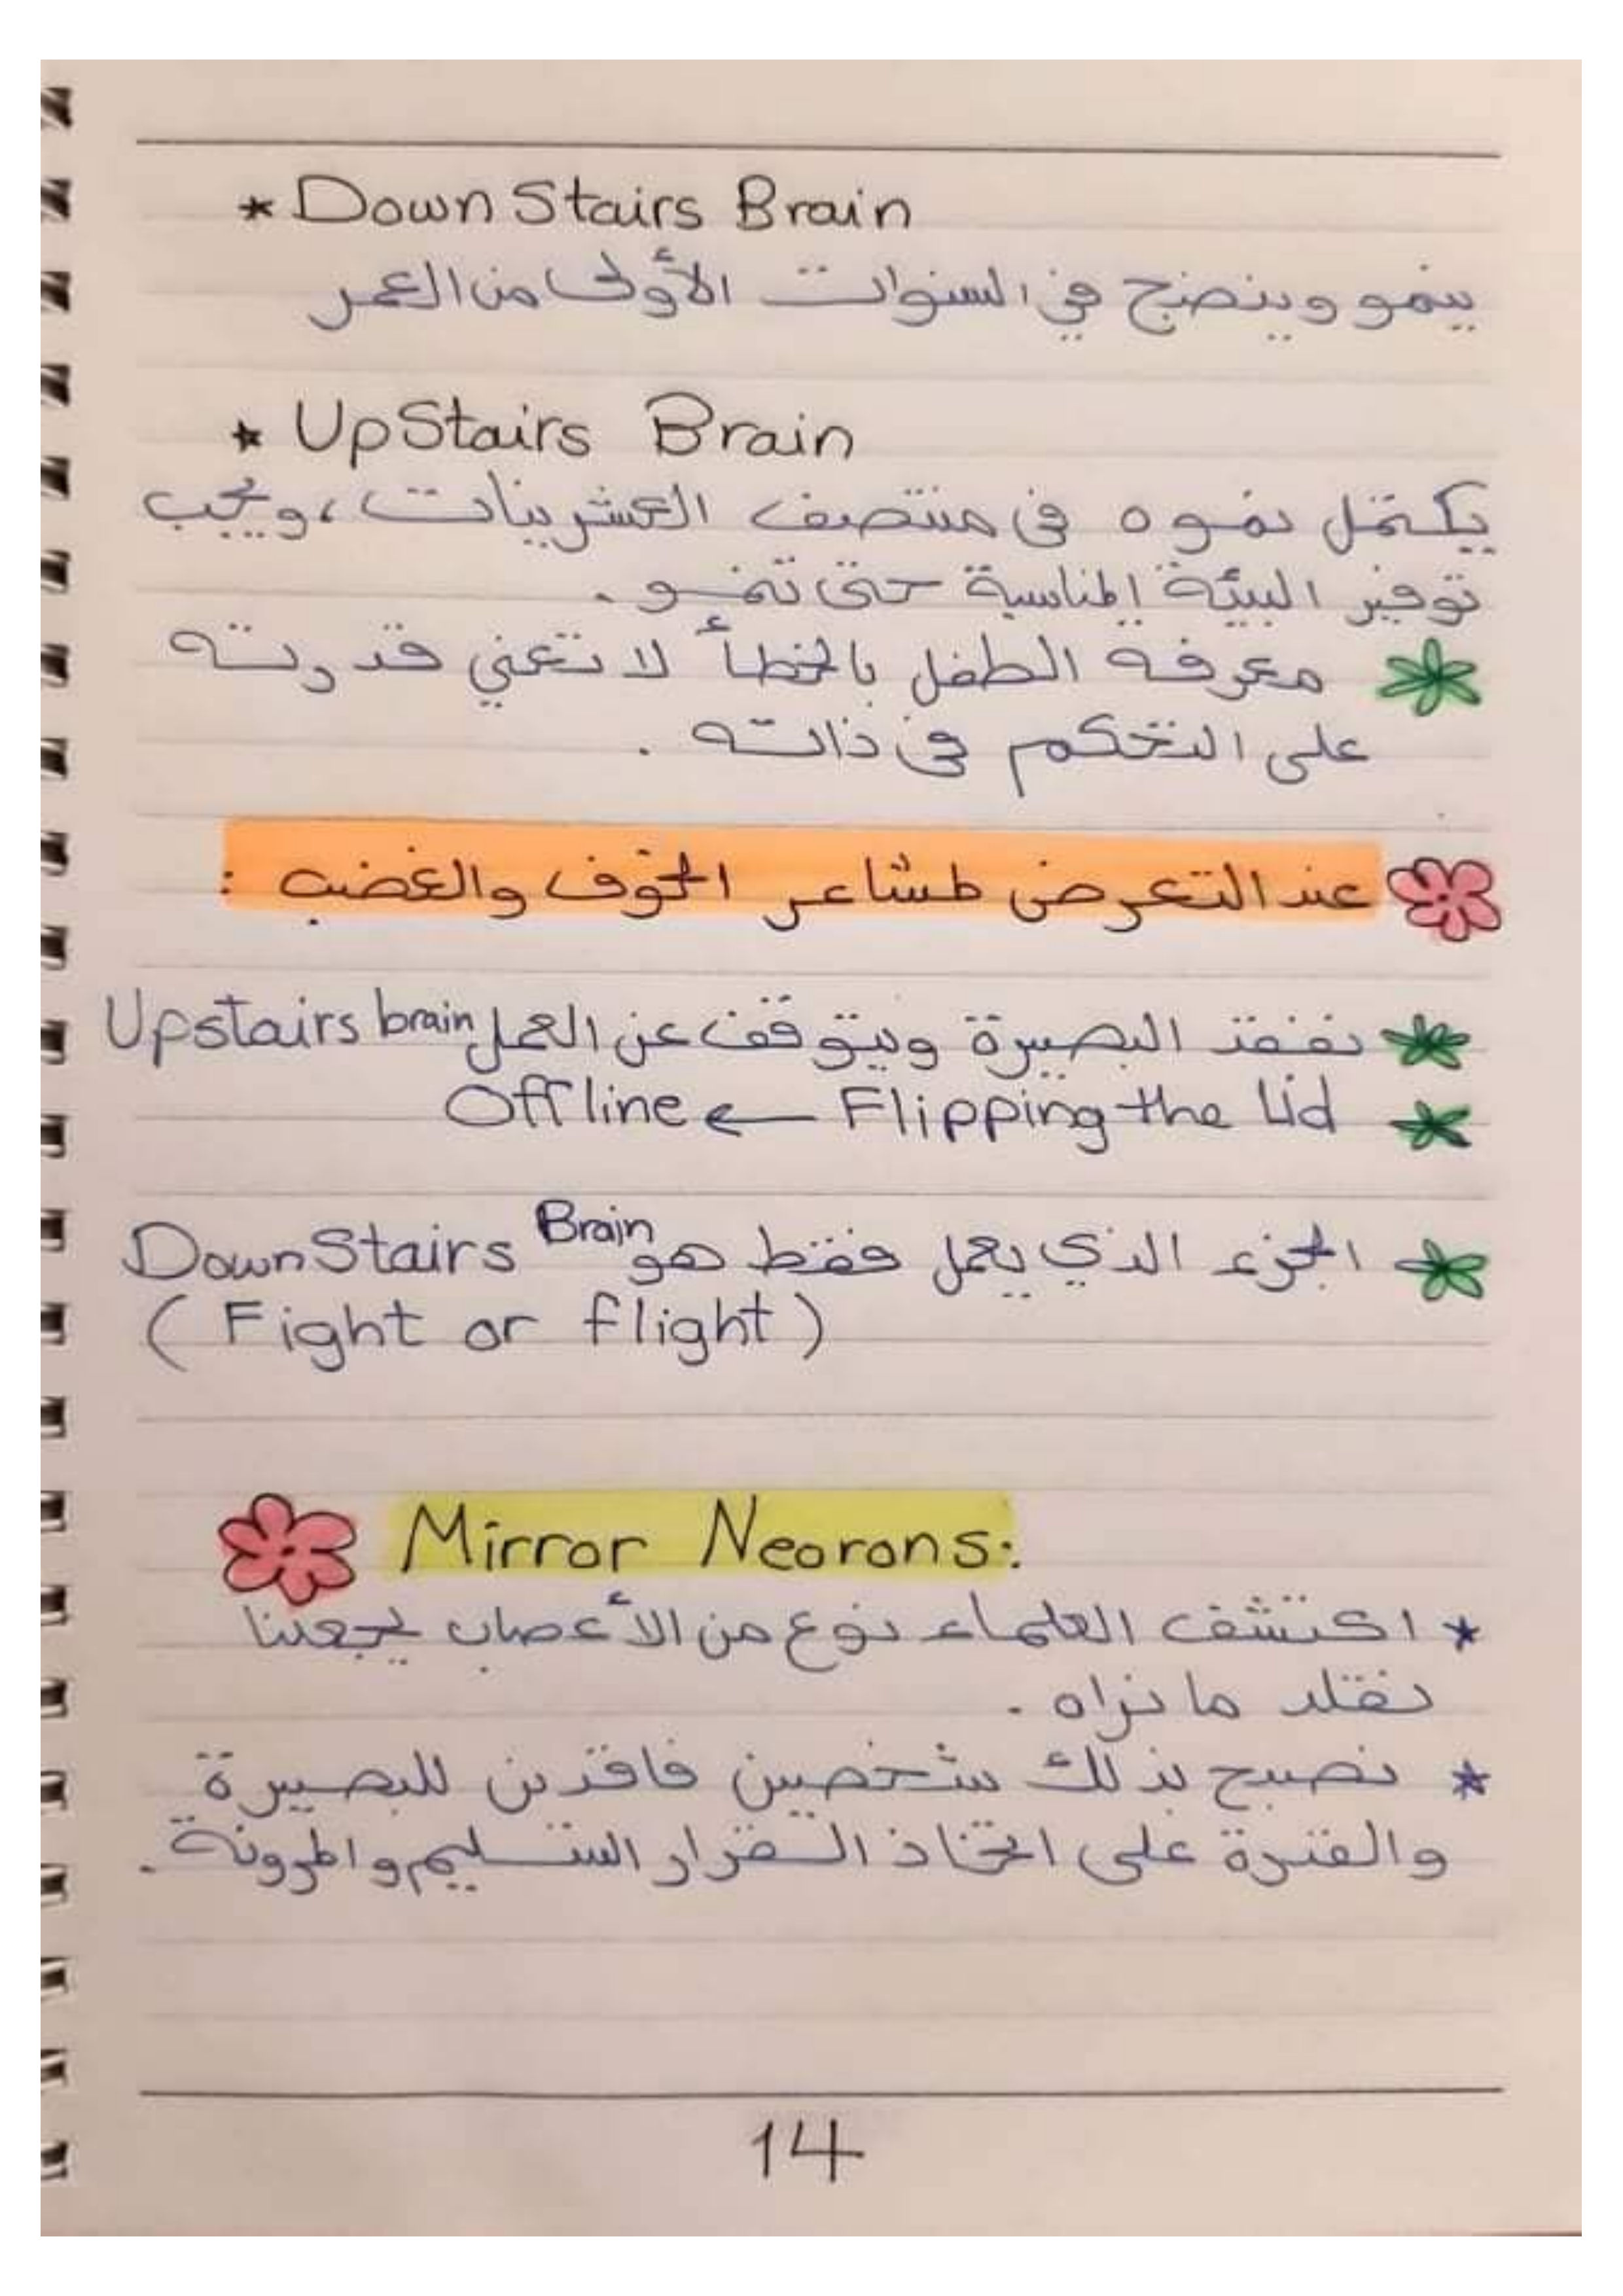 * DownStairs Brain
ينمو وينضج في السنوات الأولى من العمر
* UpStairs Brain
يكتمل نموه في منتصف العشرينات، ويجب
توفير البيئة المناسبة حتى تنمو.
* معرفة الطفل بالخطأ لا تعني قدرته
على التحكم في ذاته.
عند التعرض لمشاعر الخوف والغضب :
* نفقد البصيرة ويتوقف عن العمل Upstairs brain
* Flipping the Lid ← Offline
* الجزء الذي يعمل فقط هو DownStairs Brain
(Fight or flight)
Mirror Neorons:
* اكتشف العلماء نوع من الأعصاب يجعلنا
نقلد ما نراه.
* نصبح بذلك شخصين فاقدين للبصيرة
والقدرة على اتخاذ القرار السليم والمرونة.
14